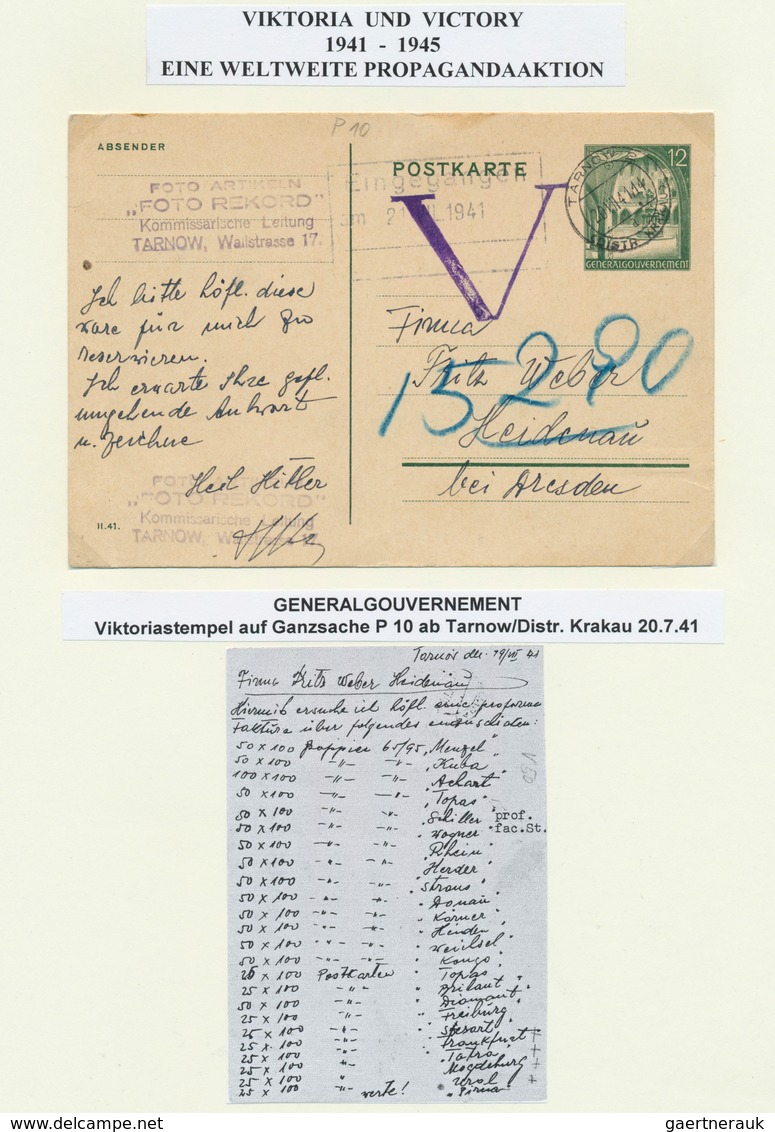 VIKTORIA UND VICTORY
1941 - 1945
EINE WELTWEITE PROPAGANDAAKTION
P 10
ABSENDER
FOTO ARTIKELN
„FOTO REKORD"
Kommissarische Leitung
TARNOW, Wallstrasse 17.
Ich bitte höfl. diese
ware für mich zu
reservieren.
Ich erwarte Ihre gefl.
umgehende Antwort
u. zeichne
Heil Hitler
FOTO
„FOTO REKORD"
Kommissarische Leitung
TARNOW,
II.41.
POSTKARTE
Eingegangen
am 21. 1941
V
12
TARNOW
DISTR. KRAKAU
GENERALGOUVERNEMENT
Firma
Fritz Weber
15 290
Heidenau
bei Dresden
GENERALGOUVERNEMENT
Viktoriastempel auf Ganzsache P 10 ab Tarnow/Distr. Krakau 20.7.41
Tarnów den 19/VII 41
Firma Fritz Weber Heidenau
Hiermit ersuche ich höfl. eine proforma
Faktura über folgendes einzuschicken:
50 x 100 pappier 65/95 „Menzel"
50 x 100 -"- -"- „Kuba"
100 x 100 -"- -"- „Achart"
50 x 100 -"- -"- „Topas"
50 x 100 -"- -"- „Schiller" prof.
50 x 100 -"- -"- „Wagner" fac.St.
50 x 100 -"- -"- „Rhein"
50 x 100 -"- -"- „Herder"
50 x 100 -"- -"- „Straus"
50 x 100 -"- -"- „Donau"
50 x 100 -"- -"- „Körner"
50 x 100 -"- -"-
50 x 100 -"- -"- „Weichsel"
50 x 100 -"- -"- „Kongo"
25 x 100 Postkarten „Topas"
25 x 100 -"- „Brilant"
50 x 100 -"- „Diamant"
25 x 100 -"- „Freiburg"
25 x 100 -"-
25 x 100 -"- „Frankfurt" +
25 x 100 -"- „Tatra" +
25 x 100 " „Magdeburg" +
25 x 100 " „Ural" +
25 x 100 " werte! „Pirna"
gaertnerauk